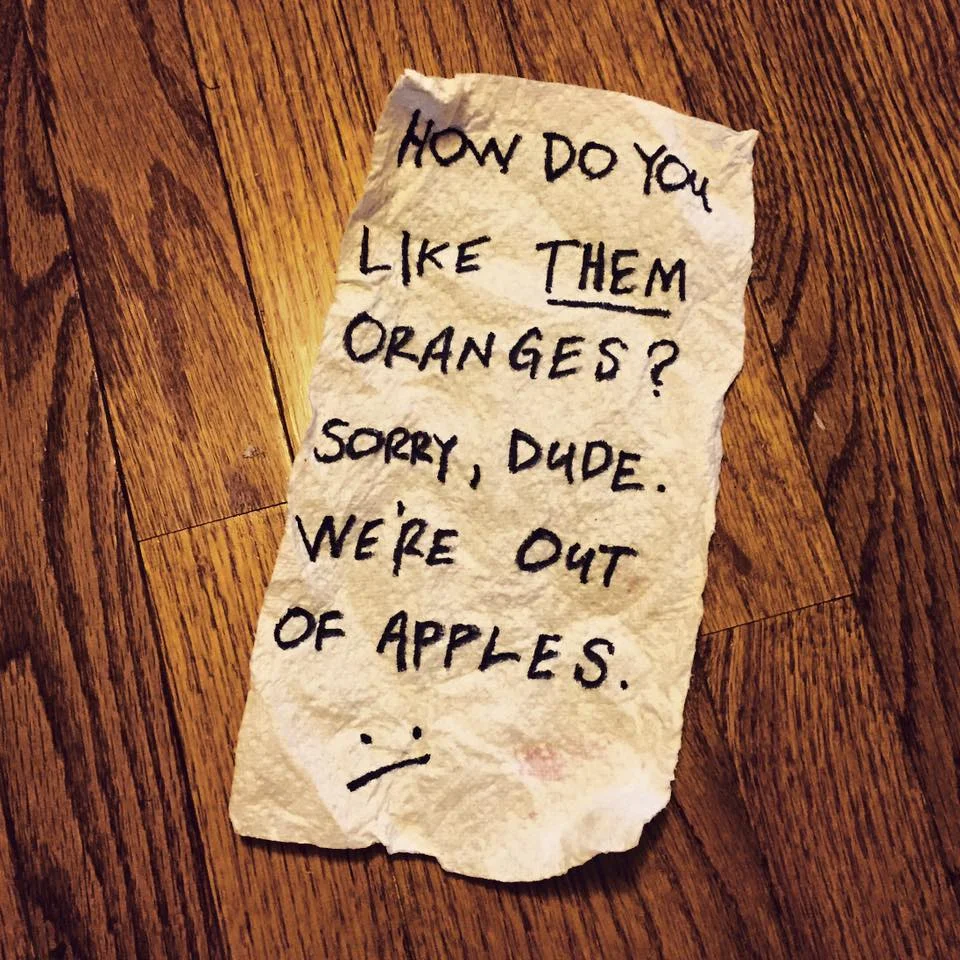 HOW DO YOU
LIKE THEM
ORANGES?
SORRY, DUDE.
WE'RE OUT
OF APPLES.